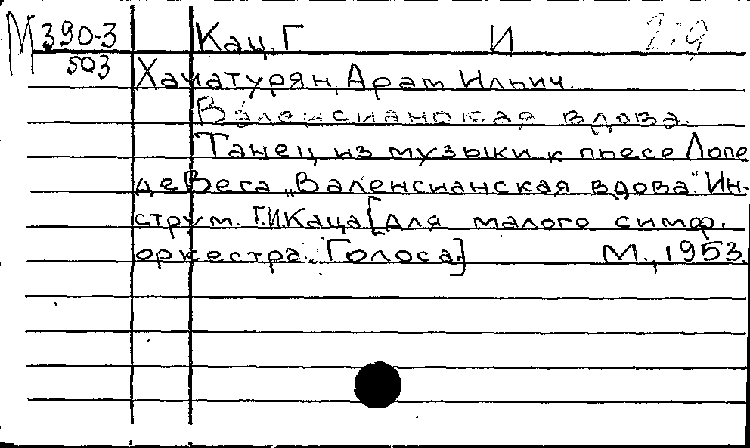 М 390-3 Кац. Г И
503
Хачатурян, Арам Ильич.
Валенсианская вдова.
Танец из музыки к пьесе Лопе
де Вега „Валенсианская вдова". Ин-
струм. Г.И.Каца [для малого симф.
оркестра. Голоса.] М., 1953.